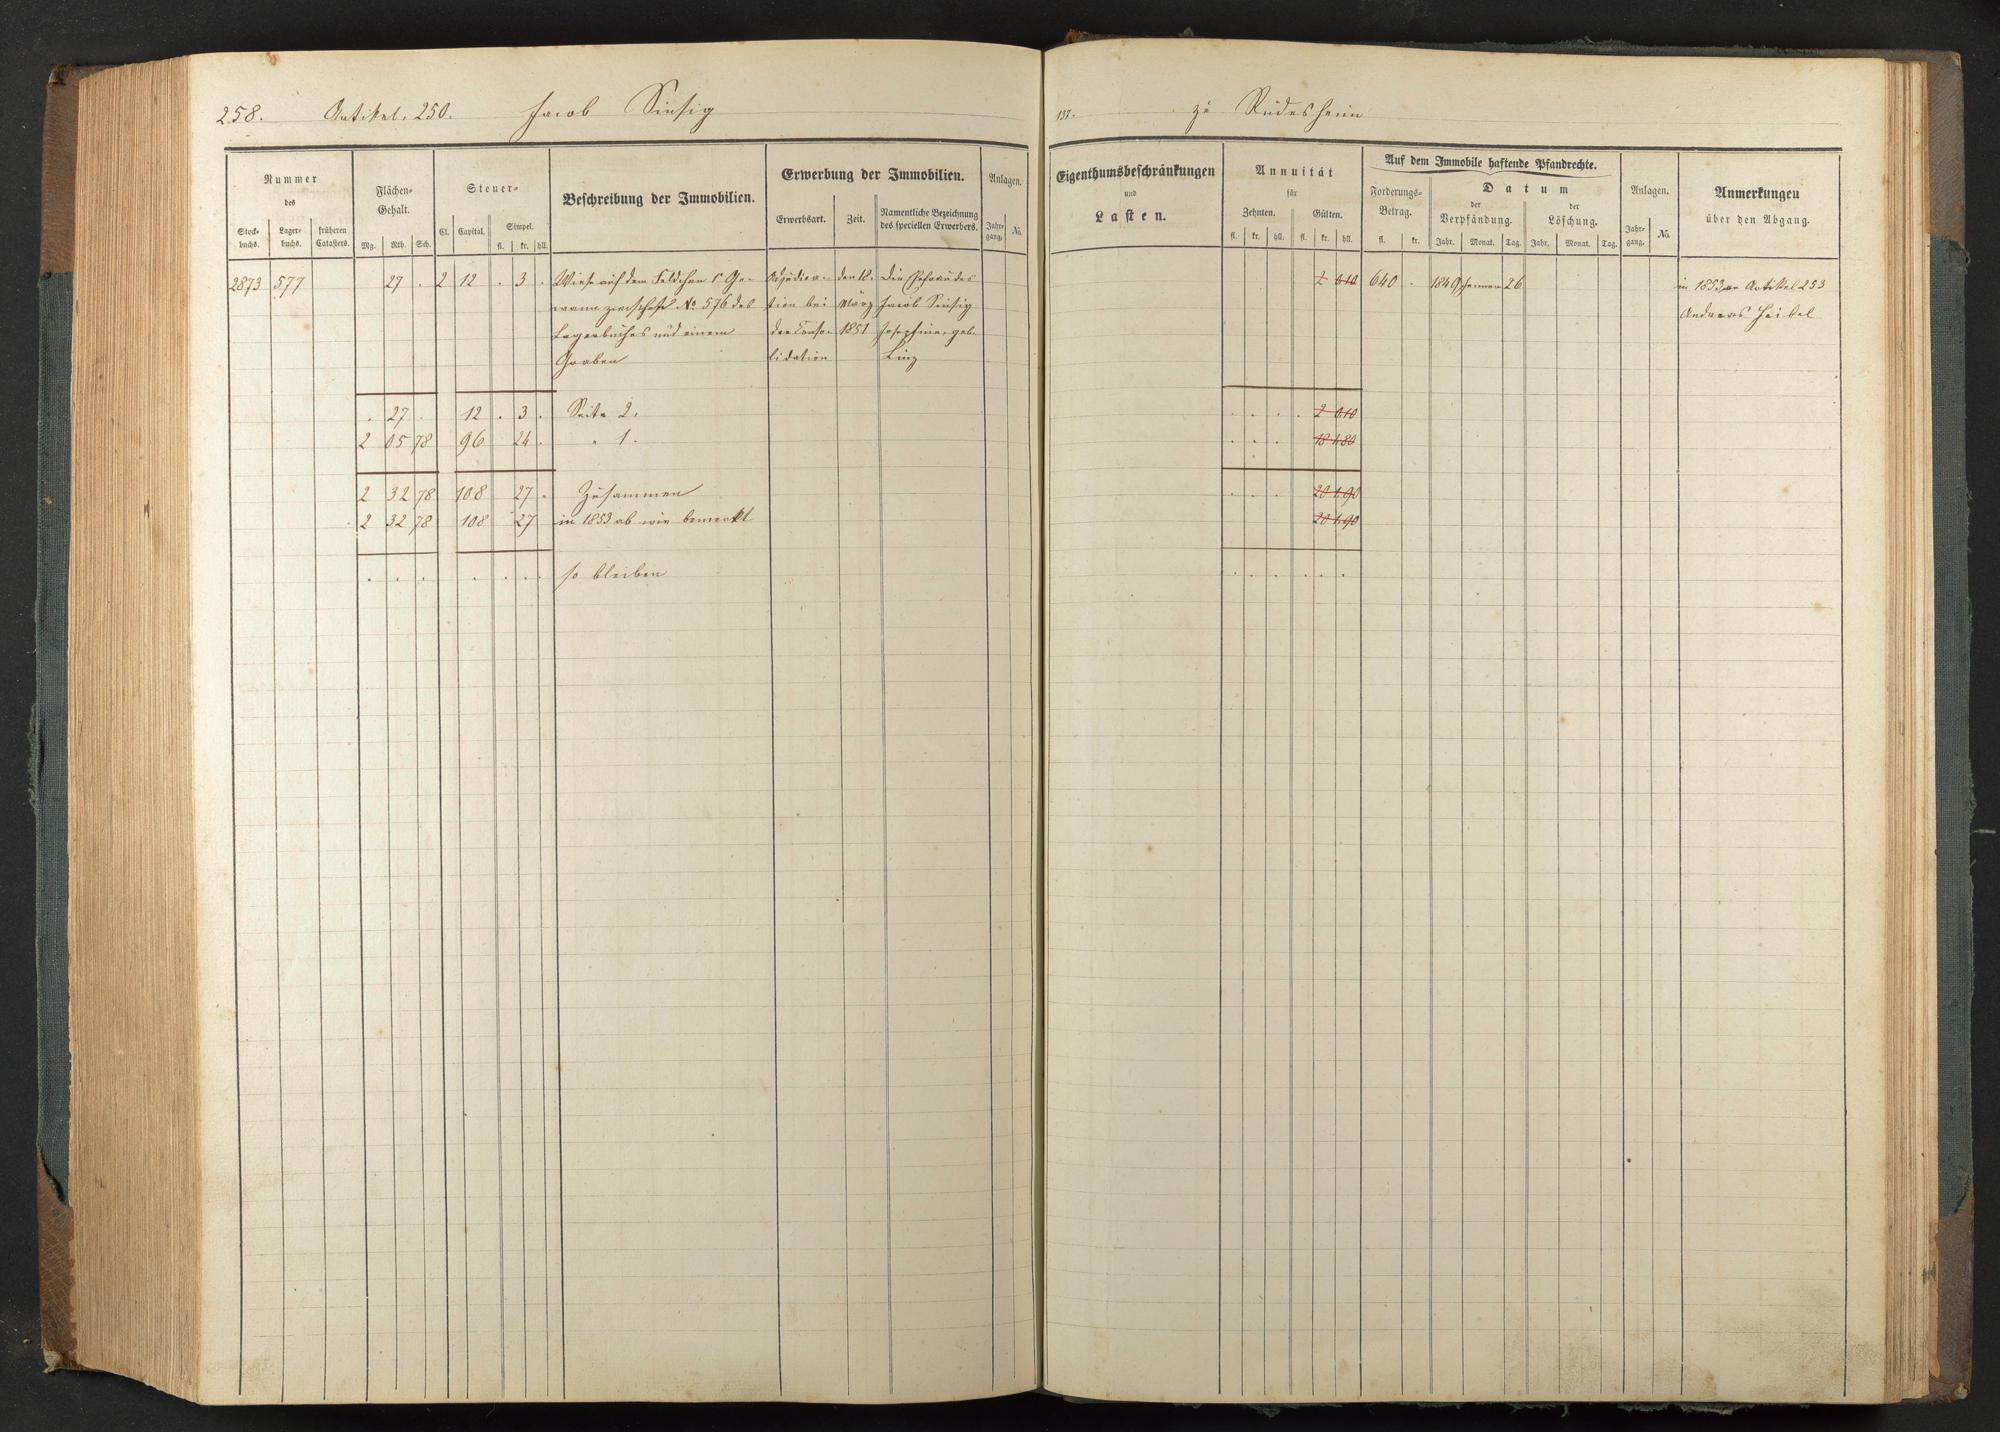 258. Artikel. 250. Jacob Sinsig
137. zu Rüdesheim
Nummer
des
Stock-
buchs.
Lager-
buchs.
früheren
Catasters.
Flächen-
Gehalt.
Mg. Rth. Sch.
Steuer-
Cl. Capital. Simpel.
fl. kr. hll.
Beschreibung der Immobilien.
Erwerbung der Immobilien.
Erwerbsart. Zeit. Namentliche Bezeichnung
des speciellen Erwerbers.
Anlagen.
Jahr-
gang. No.
Eigenthumsbeschränkungen
und
Lasten.
Annuität
für
Zehnten. Gülten.
fl. kr. hll. fl. kr. hll.
Auf dem Immobile haftende Pfandrechte.
Forderungs-
Betrag.
fl. kr.
Datum
der
Verpfändung.
Jahr. Monat. Tag.
der
Löschung.
Jahr. Monat. Tag.
Anlagen.
Jahr-
gang. No.
Anmerkungen
über den Abgang.
2873 577 27 . 2 12 . 3 .
Wiese auf dem Feldchen 1r Ge-
wann zwischen No. 576 des
Lagerbuches und einem
Graben
Adjudica-
tion bei
der Conso-
lidation
den 18.
März
1851
Die Ehefrau des
Jacob Sinsig
Josephine, geb.
Linz
2 0.10 640 . 1849 Januar 26
in 1853 an Artikel 253
Andreas Heibel
. 27 . 12 . 3 . Seite 2. . . . . 2 0.10
2 05 78 96 24 . " 1. . . . 18 1.80
2 32 78 108 27 . Zusammen . . . 20 1.90
2 32 78 108 27 in 1853 ab wie bemerkt 20 1.90
. . . . . . . so bleiben . . . . . .